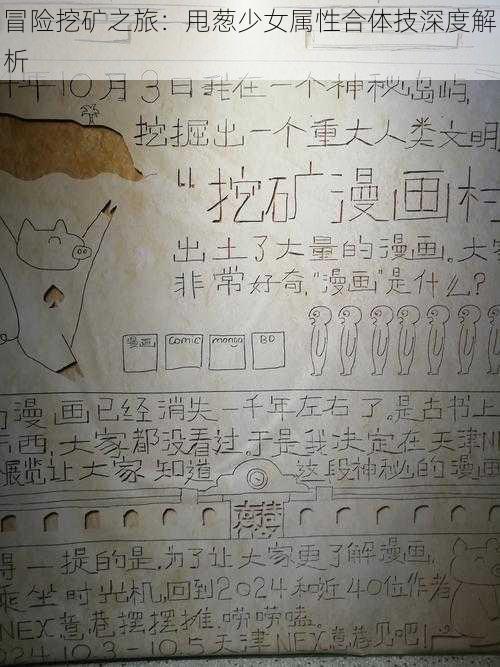 冒险挖矿之旅：甩葱少女属性合体技深度解
析
年10月3日我在一个神秘岛屿,
挖掘出一个重大人类文明
“挖矿漫画村
出土了大量的漫画。大
非常好奇,“漫画”是什么?
漫画 comic manga BD
漫画已经消失一千年左右了。是古书上
东西,大家都没看过。于是我决定在天津N
展览让大家知道 这段神秘的漫画
得一提的是,为了让大家更了解漫画,
乘坐时光机,回到2024和近40位作者
NEX意巷摆摆摊,唠唠嗑。
10.3-10.5天津NEX意巷见吧!